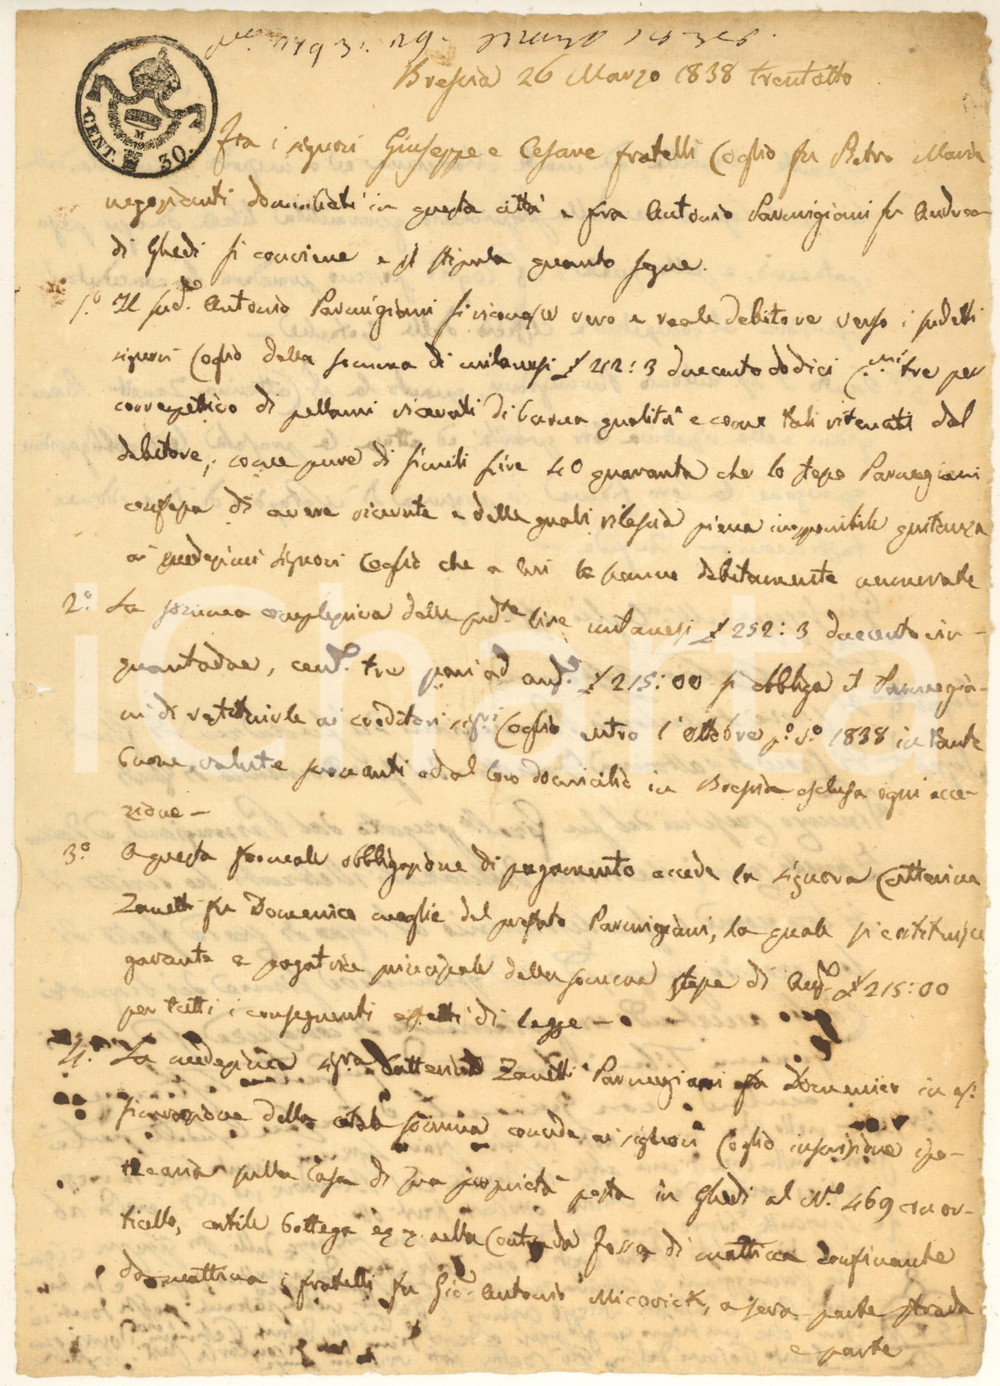 CENT. 30.
Brescia 26 Marzo 1838 trentotto
Fra i signori Giuseppe e Cesare fratelli Coglio fu Pietro Maria
negozianti domiciliati in questa città e fra Antonio Parmigiani fu Andrea
di Ghedi si conviene e si stipula quanto segue.
1.º Il sud.º Antonio Parmigiani si riconosce vero e reale debitore verso i sudetti
signori Coglio della somma di milanesi £ 212:3 duecentododici c.mi tre per
correspetivo di pellami ricevuti di buona qualità e come tali ritenuti dal
debitore, come pure di simili lire 40 quaranta che lo stesso Parmegiani
confessa di avere ricevute e delle quali rilascia piena inopponibile quitanza
ai medesimi signori Coglio che a lui le hanno debitamente annoverate
2.º La somma complessiva delle sud.te lire milanesi £ 252:3 duecento cin-
quantadue, cent. tre pari ad aus.e £ 215:00 si obbliga il Parmegia-
ni di restituirle ai creditori sig.ri Coglio entro l'ottobre p.º v.º 1838 in tante
buone valute sonanti ed al loro domicilio in Brescia esclusa ogni ecce-
zione -
3.º A questa formale obbligazione di pagamento accede la signora Catterina
Zanetti fu Domenico moglie del prefato Parmigiani, la quale si costituisce
garante e pagatrice principale della somma stessa di Aus.e £ 215:00
per tutti i conseguenti effetti di legge -
4.º La medesima sig.ra Catterina Zanetti Parmegiani fu Domenico in as-
sicurazione della somma concede ai signori Coglio inscrizione ipo-
tecaria sulla casa di sua proprietà posta in Ghedi al N.º 469 con or-
ticello, cortile bottega nella Contrada fossa di mattina confinante
da mattina i fratelli fu Gio. Antonio Micovich, a sera parte strada
e parte
ichart